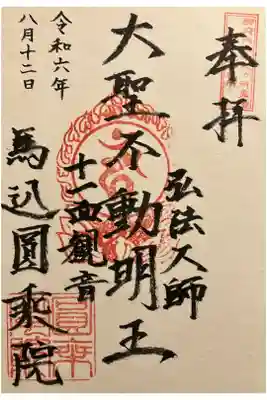 奉拝
弘法大師
大聖不動明王
十一面観音
令和六年
八月十二日
馬込圓乗院